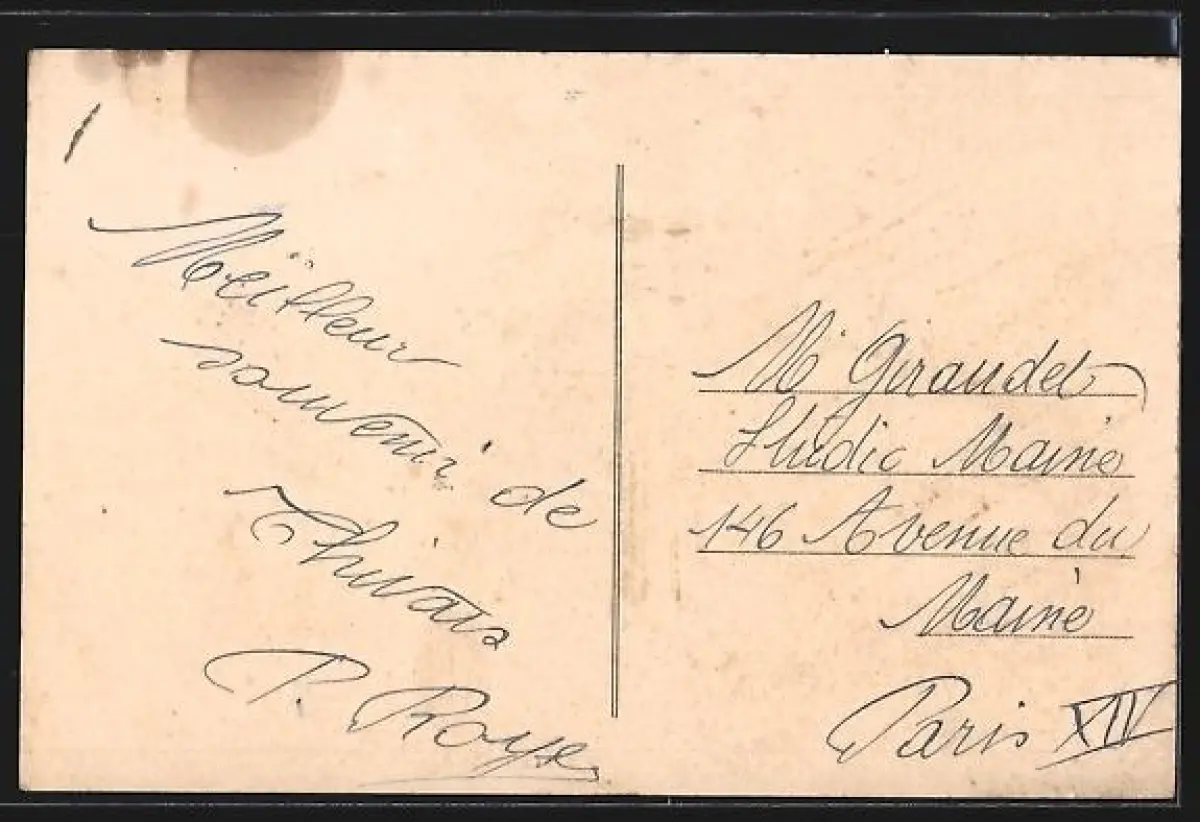 Meilleur
souvenir de
Thivars
P. Royer
Mr Giraudet
Studio Maine
146 Avenue du
Maine
Paris XIV